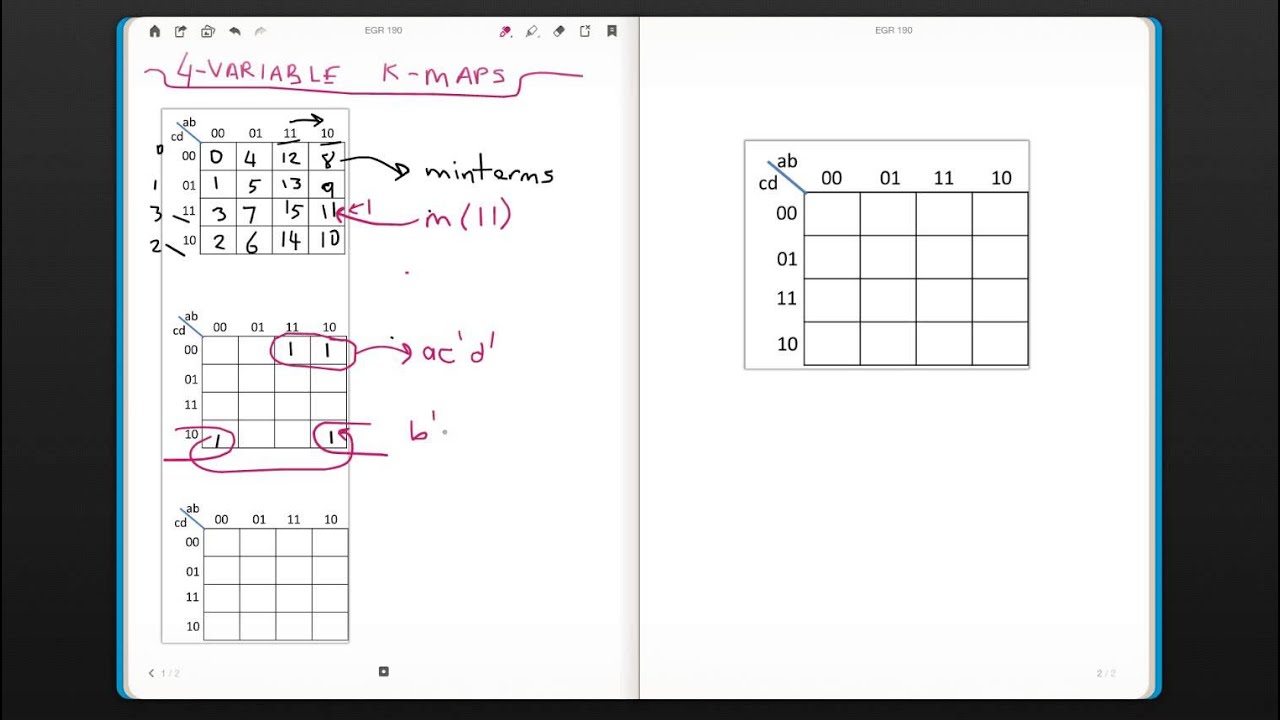 EGR 190
4-VARIABLE K-MAPS
ab
cd 00 01 11 10
0 00 0 4 12 8 minterms
1 01 1 5 13 9
3 11 3 7 15 11 <-1 m(11)
2 10 2 6 14 10
ab
cd 00 01 11 10
00 1 1 ac'd'
01
11
10 1 1 b'
ab
cd 00 01 11 10
00
01
11
10
1 / 2
EGR 190
ab
cd 00 01 11 10
00
01
11
10
2 / 2